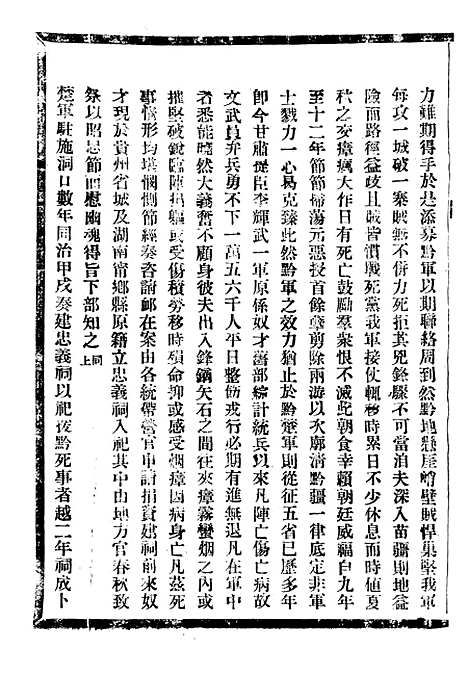 力雖期得手於是添募黔軍以期聯絡周到然黔地懸崖峭壁賊悍巢堅我軍
每攻一城破一寨賊無不併力死拒其兇鋒驟不可當洎夫深入苗疆則地益
險而路徑益歧且賊皆慣戰死黨我軍接仗輒移時累日不少休息而時値夏
秋之交瘴癘大作日有死亡鼓勵羣衆恨不滅此朝食幸賴朝廷威福自九年
至十二年節節掃蕩元惡授首餘孽剪除兩游以次廓清黔疆一律底定非軍
士戮力一心曷克臻此然黔軍之效力猶止於黔楚軍則從征五省已歷多年
卽今甘肅提臣李輝武一軍原係奴才舊部綜計統兵以來凡陣亡傷亡病故
文武員弁兵勇不下一萬五六千人平日整飭戎行必期有進無退凡在軍中
者悉能曉然大義奮不顧身彼夫出入鋒鏑矢石之間往來瘴霧蠻烟之內或
摧堅破銳臨陣捐軀或受傷積勞移時殞命抑或感受烟瘴因病身亡凡茲死
事情形均堪憫惻節經奏咨請卹在案由各統帶營官申請捐資建祠前來奴
才現於貴州省城及湖南甯鄉縣原籍立忠義祠入祀其中由地方官春秋致
祭以昭忠節而慰幽魂得旨下部知之同上
楚軍駐施洞口數年同治甲戌奏建忠義祠以祀援黔死事者越二年祠成卜